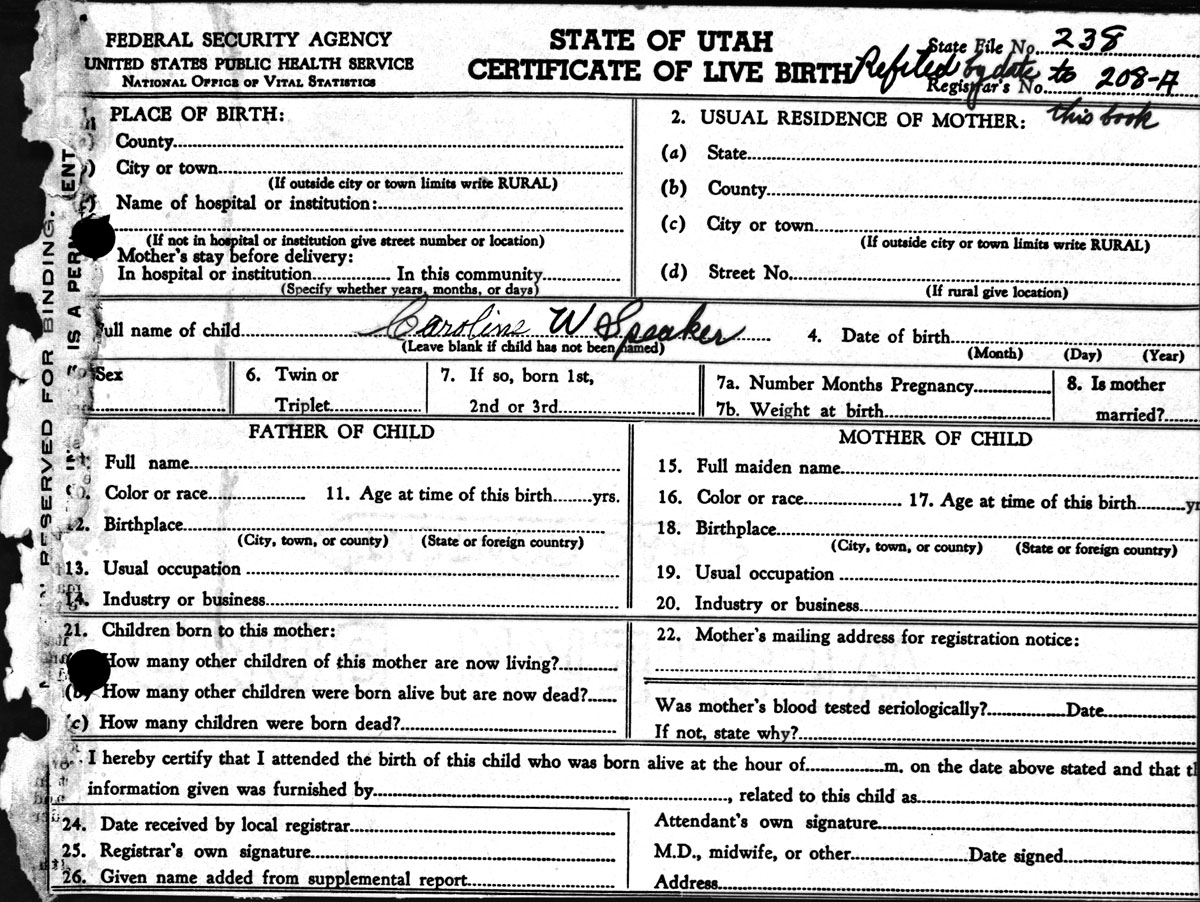 FEDERAL SECURITY AGENCY
UNITED STATES PUBLIC HEALTH SERVICE
NATIONAL OFFICE OF VITAL STATISTICS
STATE OF UTAH
CERTIFICATE OF LIVE BIRTH
State File No. 238
Refiled by date to 208-A
Registrar's No.
this book
RESERVED FOR BINDING.
IS A PER
PLACE OF BIRTH:
County
City or town
(If outside city or town limits write RURAL)
Name of hospital or institution:
(If not in hospital or institution give street number or location)
Mother's stay before delivery:
In hospital or institution In this community
(Specify whether years, months, or days)
2. USUAL RESIDENCE OF MOTHER:
(a) State
(b) County
(c) City or town
(If outside city or town limits write RURAL)
(d) Street No.
(If rural give location)
Full name of child Caroline W Speaker
(Leave blank if child has not been named)
4. Date of birth
(Month) (Day) (Year)
Sex
6. Twin or
Triplet
7. If so, born 1st,
2nd or 3rd
7a. Number Months Pregnancy
7b. Weight at birth
8. Is mother
married?
FATHER OF CHILD
Full name
Color or race 11. Age at time of this birth yrs.
12. Birthplace
(City, town, or county) (State or foreign country)
13. Usual occupation
14. Industry or business
MOTHER OF CHILD
15. Full maiden name
16. Color or race 17. Age at time of this birth yr
18. Birthplace
(City, town, or county) (State or foreign country)
19. Usual occupation
20. Industry or business
21. Children born to this mother:
How many other children of this mother are now living?
(b) How many other children were born alive but are now dead?
(c) How many children were born dead?
22. Mother's mailing address for registration notice:
Was mother's blood tested seriologically? Date
If not, state why?
I hereby certify that I attended the birth of this child who was born alive at the hour of m. on the date above stated and that th
information given was furnished by , related to this child as
24. Date received by local registrar
25. Registrar's own signature
26. Given name added from supplemental report
Attendant's own signature
M.D., midwife, or other Date signed
Address